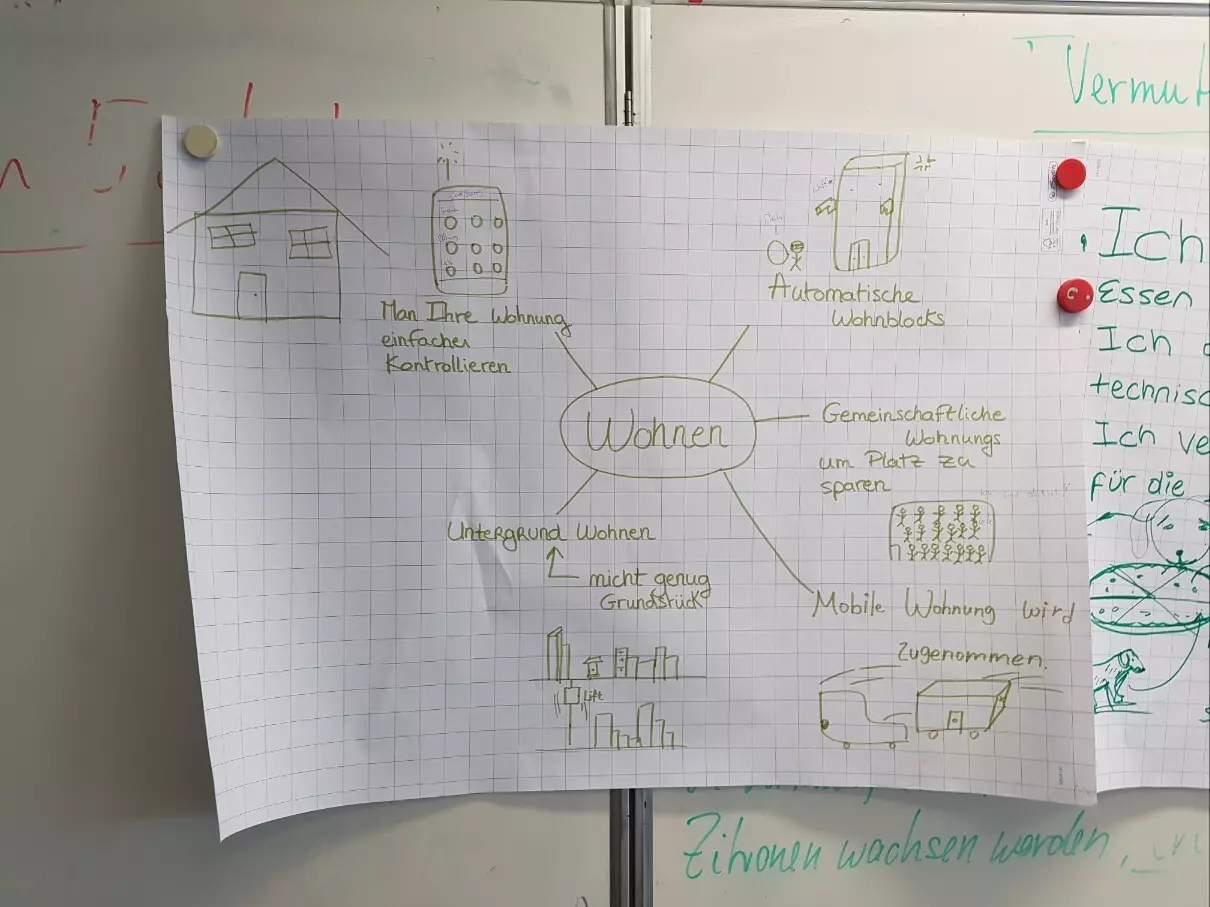 Vermut
Man Ihre Wohnung
einfacher
Kontrollieren
Automatische
Wohnblocks
Wohnen
Gemeinschaftliche
Wohnungs
um Platz zu
sparen
Untergrund Wohnen
nicht genug
Grundstück
Lift
Mobile Wohnung wird
Zugenommen.
Ich
Essen
Ich
technisc
Ich ve
für die
Zitronen wachsen werden,